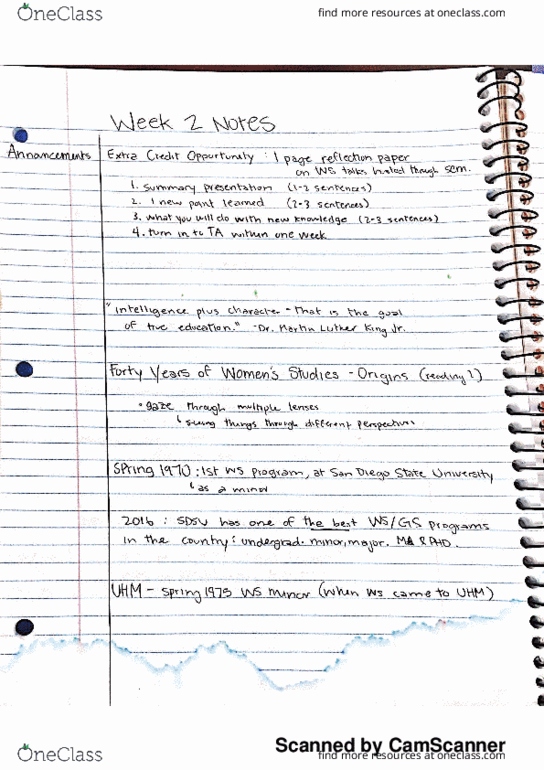 OneClass
find more resources at oneclass.com
Week 2 Notes
Announcements
Extra Credit Opportunity : 1 page reflection paper
on WS talks hosted through sem.
1. summary presentation (1-2 sentences)
2. 1 new point learned (2-3 sentences)
3. what you will do with new knowledge (2-3 sentences)
4. turn in to TA within one week
"Intelligence plus character - That is the goal
of true education." -Dr. Martin Luther King Jr.
Forty Years of Women's Studies - Origins (reading 1)
• gaze through multiple lenses
↳ seeing things through different perspectives
Spring 1970 : 1st WS program, at San Diego State University
↳ as a minor
2016 : SDSU has one of the best WS/GS programs
in the country : undergrad. minor, major. MA & PHD.
UHM - Spring 1975 WS minor (when WS came to UHM)
Scanned by CamScanner
OneClass
find more resources at oneclass.com